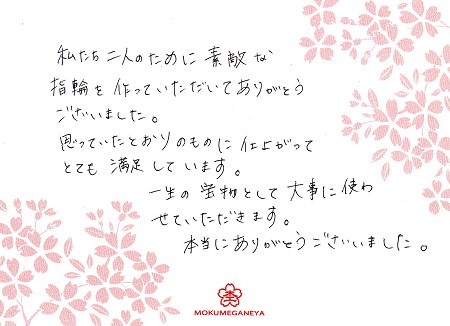 私たち二人のために素敵な
指輪を作っていただいてありがとう
ございました。
思っていたとおりのものに仕上がって
とても満足しています。
一生の宝物として大事に使わ
せていただきます。
本当にありがとうございました。
MOKUMEGANEYA